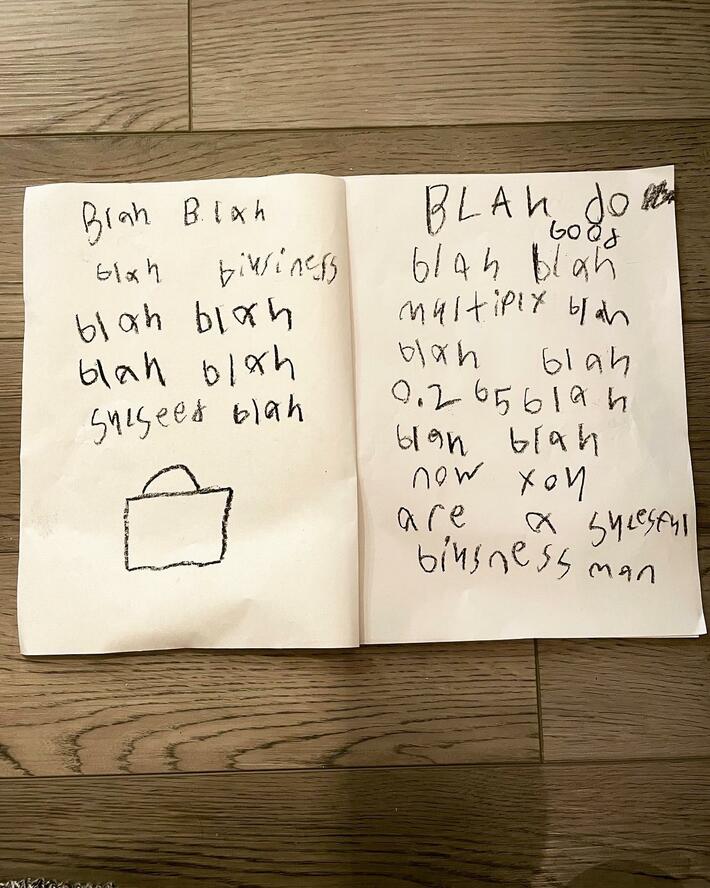 Blah Blah
blah biusiness
blah blah
blah blah
sucseed blah
BLAH do
good
blah blah
multiply blah
blah blah
0.265 blah
blah blah
now you
are a sucesful
biusness man